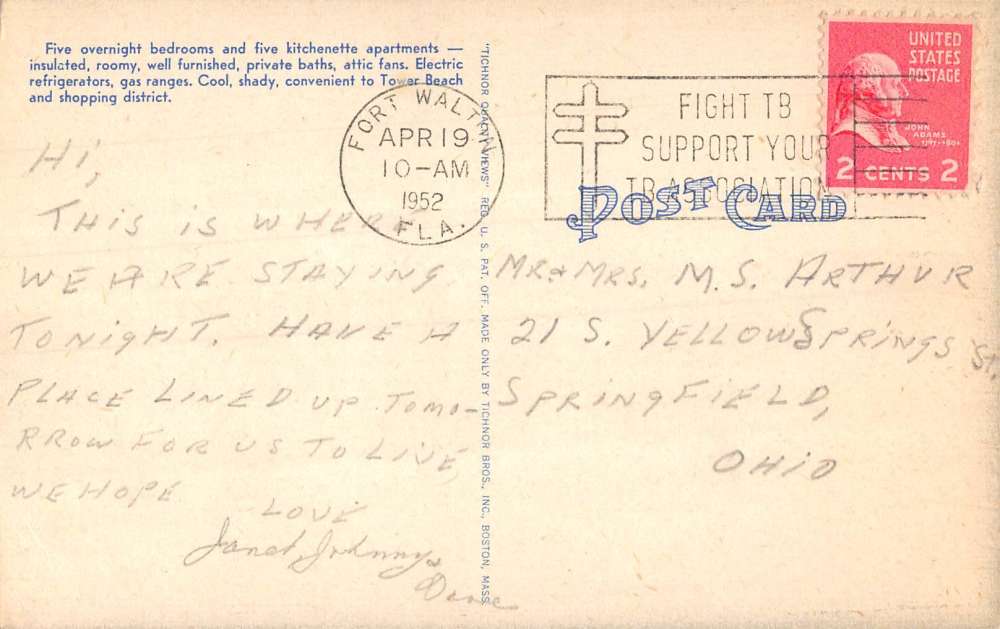 Five overnight bedrooms and five kitchenette apartments —
insulated, roomy, well furnished, private baths, attic fans. Electric
refrigerators, gas ranges. Cool, shady, convenient to Tower Beach
and shopping district.
FORT WALTON
APR 19
10-AM
1952
FLA.
FIGHT TB
SUPPORT YOUR
TB ASSOCIATION
UNITED
STATES
POSTAGE
JOHN
ADAMS
2 CENTS 2
POST CARD
HI,
THIS IS WHERE
WE ARE STAYING
TONIGHT. HAVE A
PLACE LINED UP TOMO-
RROW FOR US TO LIVE,
WE HOPE
LOVE
Janet, Johnny &
"TICHNOR QUALITY VIEWS" REG. U. S. PAT. OFF. MADE ONLY BY TICHNOR BROS., INC., BOSTON, MASS.
MR & MRS. M. S. ARTHUR
21 S. YELLOW SPRINGS St.
SPRINGFIELD,
OHIO